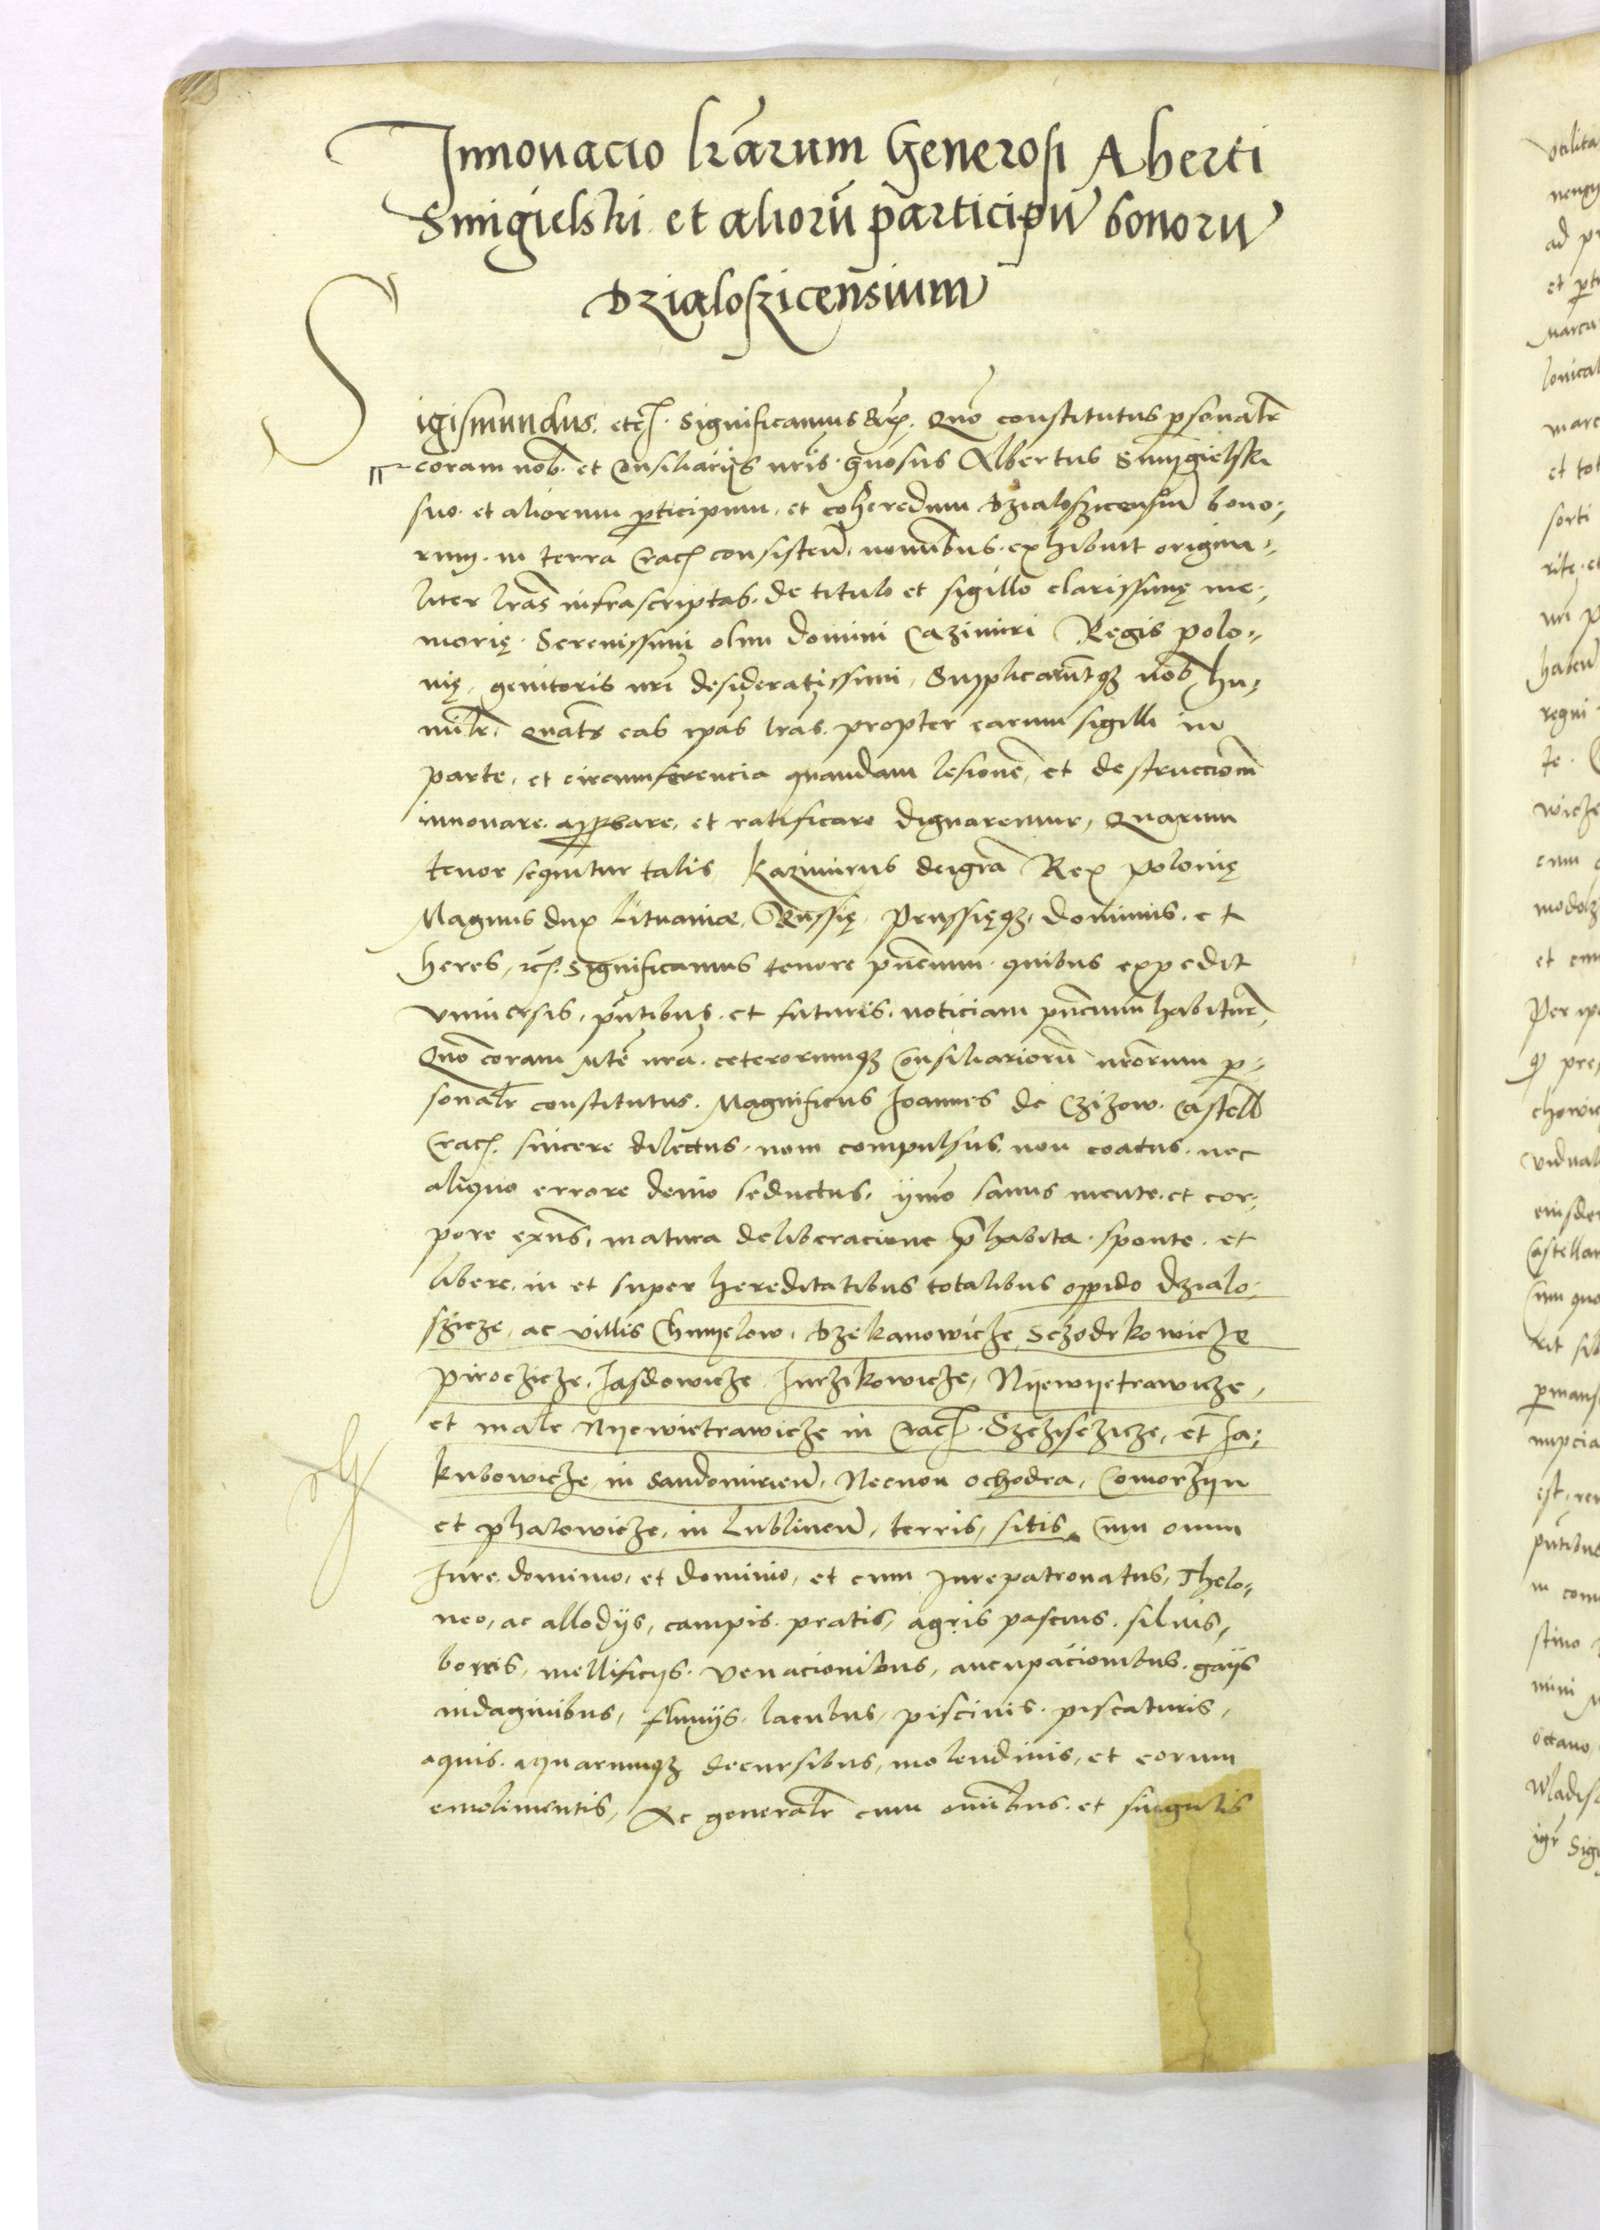 Innovacio lrarum Generosi Aberti
Smigielski et aliorū participū bonorū
Dzialoszicensium
Sigismundus. etc. Significamus &c. Quō constitutus psonalr
coram nob. et Consiliarijs nris. gnosus Albertus Smygielski
suo. et aliorum pticipum. et coheredum Dzialoszicensiū bono:
rum. in terra Crac consisten. nominibus. exhibuit origina:
liter lras infrascriptas. de titulo et sigillo clarissimę me:
morię. Serenissimi olim domini Cazimiri Regis polo:
nię, genitoris nri desideratissimi, Supplicavitqz nob hu:
milr. Quatn eas ipas lras. propter earum sigilli in
parte, et circumferencia quandam lesionē, et destruccionē
innovare. approbare, et ratificare dignaremur, Quarum
tenor sequitur talis, Kazimirus deigra Rex polonię
Magnus dux Lituaniæ, Russię, Prussięqz. dominus. et
heres, etc. Significamus tenore pncium. quibus expedit
vniversis, pntibus. et futuris. noticiam pncium habitur.
Quō coram Mte nra. ceterorumqz Consiliariorū nrorum p:
sonalr constitutus. Magnificus Joannes de Czizow. Castell
Crac. sincere dilectus. non compulsus. non coatus. nec
aliquo errore devio seductus. ymo sanus mente. et cor:
pore exns, matura deliberacione phabita. sponte. et
libere. in et super hereditatibus totalibus oppido Dzialo:
szicze, ac villis Chmyelow. Dzekanowicze Sczodrkowicze
Piroczicze. Jasdowicze Jurzikowicze, Nyewyetrawicze,
et male Nyewietrawicze in Crac. Szczisezicze, et Ja:
kubowicze, in Sandomirien, Necnon Ochodza, Comorzyn
et phalowicze, in Lublinen, terris, sitis, Cum omni
Jure. dominio, et dominio, et cum Jurepatronatus, Thelo:
neo, ac allodijs, campis. pratis, agris pascuis. siluis,
borris, mellificijs. venacionibus, aucupacionibus. gaijs
indaginibus, fluuijs. lacubus, piscinis. piscaturis,
aquis. aquarumqz decursibus, molendinis, et eorum
emolimentis, Ac generalr cum omnibus. et singulis